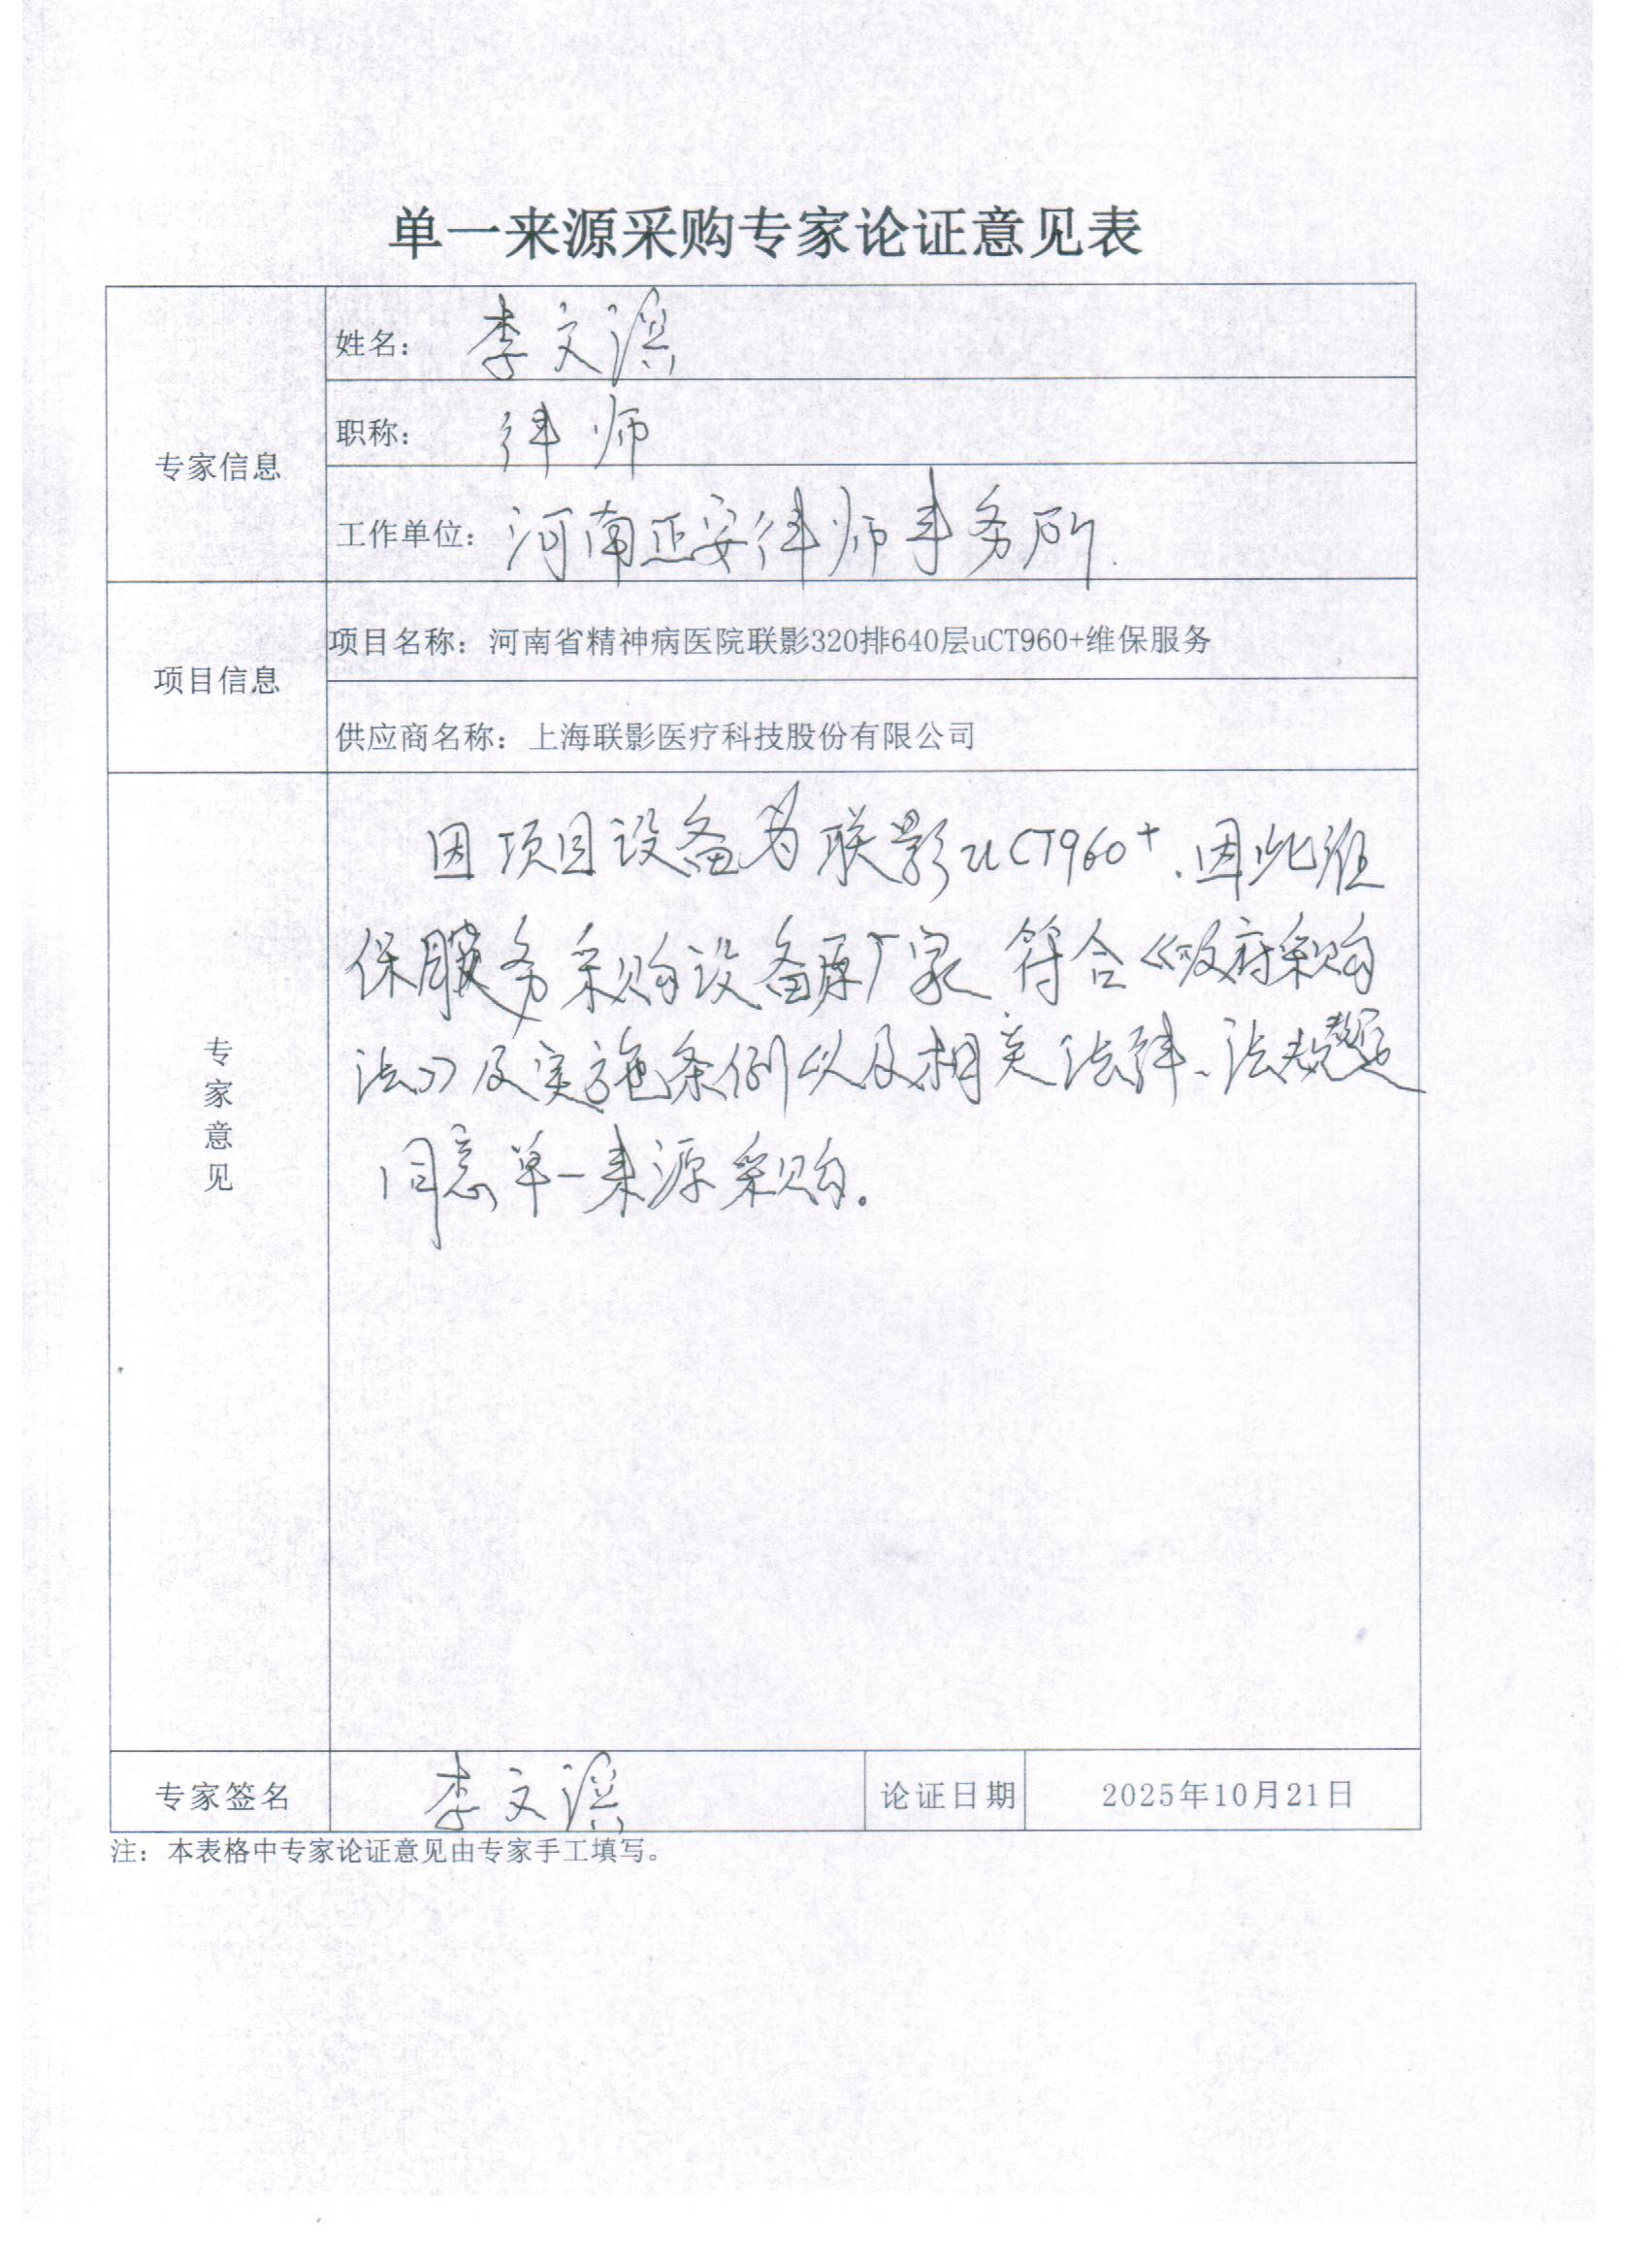 单一来源采购专家论证意见表
专家信息
姓名: 李文
职称: 律师
工作单位: 河南正安律师事务所.
项目信息
项目名称: 河南省精神病医院联影320排640层uCT960+维保服务
供应商名称: 上海联影医疗科技股份有限公司
专家意见
因项目设备为联影uCT960+、因此维
保服务采购设备原厂家 符合《政府采购
法》及实施条例以及相关法律、法规
同意单一来源采购。
专家签名
李文
论证日期
2025年10月21日
注: 本表格中专家论证意见由专家手工填写。